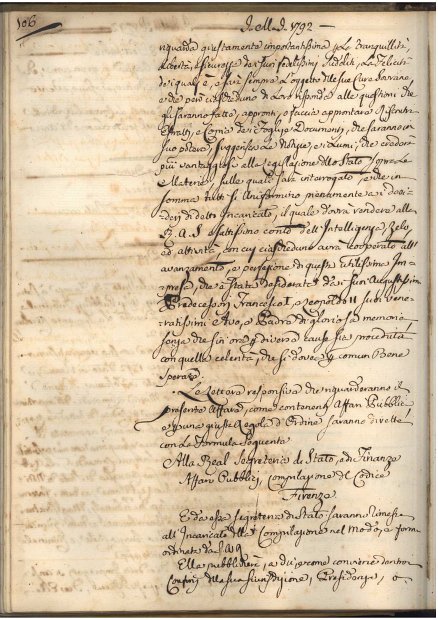 106
A. M. D. 1792
riguarda questa tanto importantissima p. la tranquillità,
libertà, e sicurezza dei suoi fedelissimi Sudditi, la felicità
de i quali è, e sarà sempre l'oggetto delle sue Cure Sovrane,
e che però ciascheduno di Loro risponda alle questioni che
gli saranno fatte, appronti, o faccia approntare
Estratti, e Copie dei Fogli, e Documenti, che saranno in
suo potere, suggerisca le Notizie, e i Lumi, che crederà
più vantaggiosi alla Legislazione dello Stato sopra le
Materie, sulle quali sarà interrogato, e che in
somma tutti si uniformino pienamente ai desi-
derj di detto Incaricato, il quale dovrà rendere alla
R. A. S. esattissimo conto dell'Intelligenza, Zelo,
ed attività, con cui ciascheduno avrà cooperato all'
avanzamento, e perfezione di questa utilissima Im-
presa, che è stata desiderata dai suoi Augustissimi
Predecessori Francesco I, e Leopoldo II suoi Vene-
ratissimi Avo, e Padre di gloriosa memoria
senza che sin'ora p. diverse cause sia proceduta
con quella celerità, che si doveva p. comun Bene
sperare.
Le lettere responsive che riguarderanno il
presente Affare, come contenenti Affari Pubblici
e giusta Regola d'Ordine saranno dirette
con la Formula seguente
Alla Real Segreteria di Stato, e di Finanze
Affari Pubblici, Compilazione del Codice
Firenze
E da essa Segreteria di Stato saranno rimesse
all'Incaricato della Compilazione nel Modo, e forma
ordinate da S. A. R.
Ella pubblicherà, a chi, e come conviene dentro i
Confini della sua Giurisdizione, o